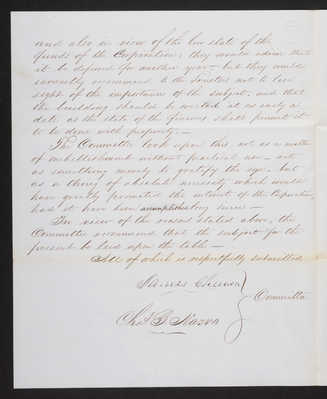 and also in view of the low state of the
funds of the Corporation; they would advise that
it be deferred for another year – but they would
earnestly recommend to the Trustees not to lose
sight of the importance of the subject, and that
the building should be erected at as early a
date as the state of the finances shall permit it
to be done with propriety. –
The Committee look upon this not as a matter
of embellishment without practical use – not
as something merely to gratify the eye, but
as a thing of absolute necessity which would
have greatly promoted the interest of the Corporation,
had it have been accomplished long since –
In view of the reasons stated above, the
Committee recommend that the subject for the
present be laid upon the table –
All of which is respectfully submitted
James
Committee
Chas B